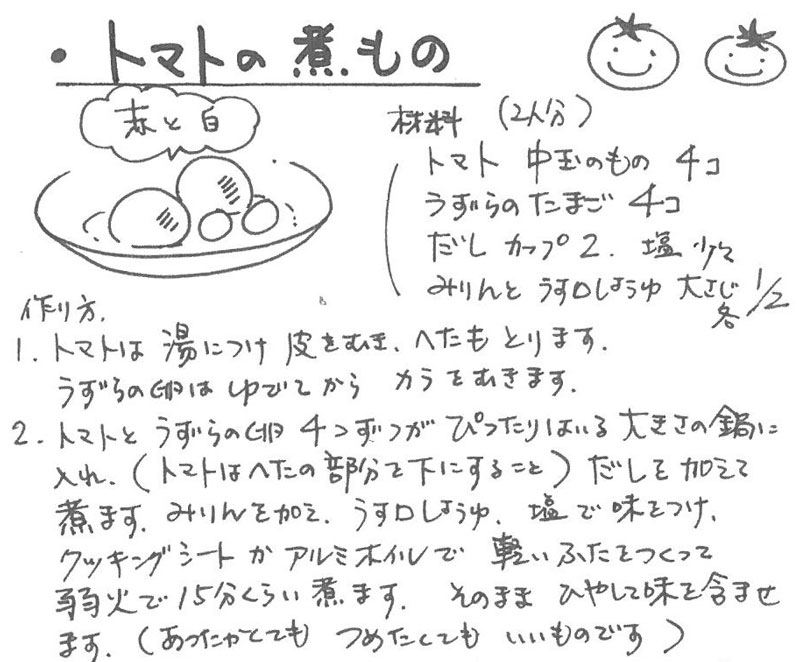 ・トマトの煮もの
赤と白
材料 (2人分)
トマト 中玉のもの 4コ
うずらのたまご 4コ
だし カップ2. 塩少々
みりんと うす口しょうゆ 大さじ各1/2
作り方.
1. トマトは 湯につけ 皮をむき、へたも とります.
うずらの卵は ゆでてから カラをむきます.
2. トマトと うずらの卵 4コずつが ぴったりはいる 大きさの鍋に
入れ.(トマトはへたの部分を下にすること)だしを加えて
煮ます. みりんを加え. うす口しょうゆ. 塩で味をつけ.
クッキングシートか アルミホイルで 軽いふたをつくって
弱火で15分くらい煮ます. そのまま ひやして味を含ませ
ます.(あったかくても つめたくても いいものです)